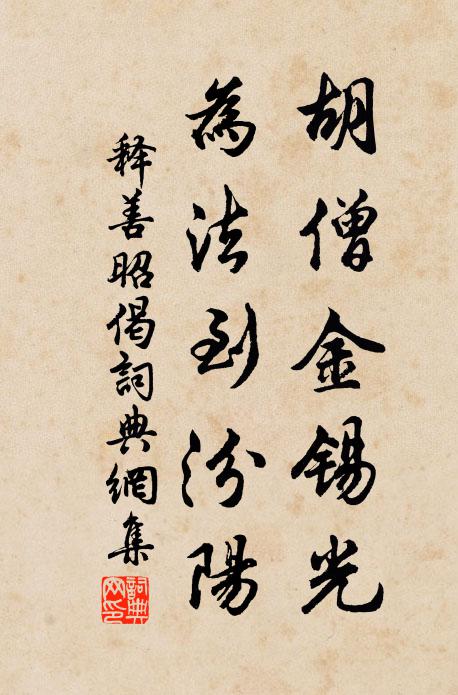 胡僧金锡光
為法到汾陽
释善昭偈詞典網集
詞典网印